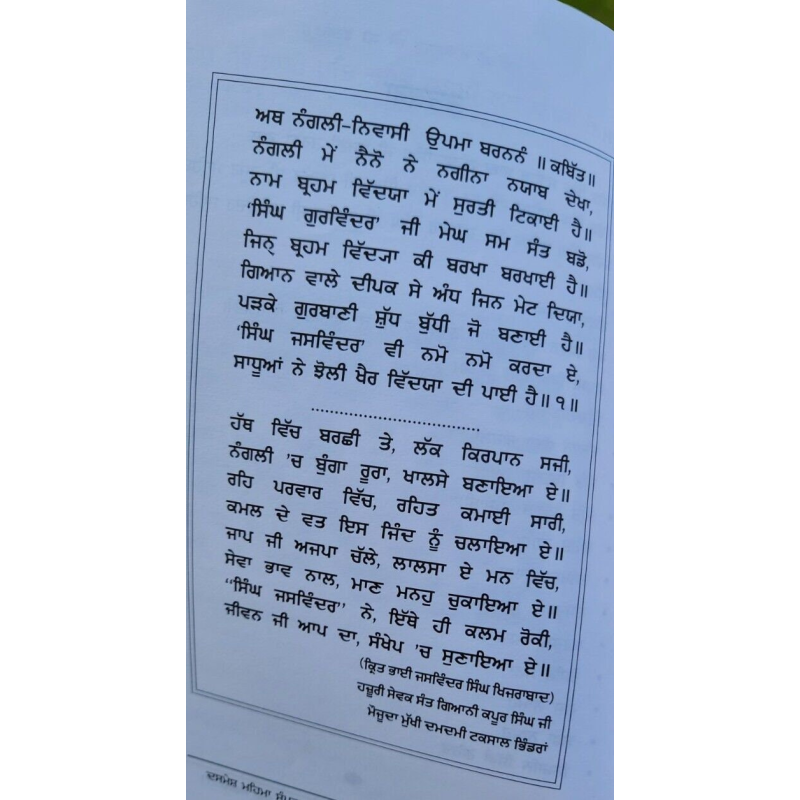 ਅਥ ਨੰਗਲੀ-ਨਿਵਾਸੀ ਉਪਮਾ ਬਰਨਨੰ ॥ ਕਬਿੱਤ॥
ਨੰਗਲੀ ਮੇਂ ਨੈਨੋ ਨੇ ਨਗੀਨਾ ਨਯਾਬ ਦੇਖਾ,
ਨਾਮ ਬ੍ਰਹਮ ਵਿੱਦਯਾ ਮੇਂ ਸੁਰਤੀ ਟਿਕਾਈ ਹੈ॥
'ਸਿੰਘ ਗੁਰਵਿੰਦਰ' ਜੀ ਮੇਘ ਸਮ ਸੰਤ ਬਡੋ,
ਜਿਨ੍ ਬ੍ਰਹਮ ਵਿੱਦ੍ਯਾ ਕੀ ਬਰਖਾ ਬਰਖਾਈ ਹੈ॥
ਗਿਆਨ ਵਾਲੇ ਦੀਪਕ ਸੇ ਅੰਧ ਜਿਨ ਮੇਟ ਦਿਯਾ,
ਪੜਕੇ ਗੁਰਬਾਣੀ ਸ਼ੁੱਧ ਬੁੱਧੀ ਜੋ ਬਣਾਈ ਹੈ॥
'ਸਿੰਘ ਜਸਵਿੰਦਰ' ਵੀ ਨਮੋ ਨਮੋ ਕਰਦਾ ਏ,
ਸਾਧੂਆਂ ਨੇ ਝੋਲੀ ਖੈਰ ਵਿੱਦਯਾ ਦੀ ਪਾਈ ਹੈ॥੧॥
....................................
ਹੱਥ ਵਿੱਚ ਬਰਛੀ ਤੇ, ਲੱਕ ਕਿਰਪਾਨ ਸਜੀ,
ਨੰਗਲੀ 'ਚ ਬੁੰਗਾ ਰੂਰਾ, ਖਾਲਸੇ ਬਣਾਇਆ ਏ॥
ਰਹਿ ਪਰਵਾਰ ਵਿੱਚ, ਰਹਿਤ ਕਮਾਈ ਸਾਰੀ,
ਕਮਲ ਦੇ ਵਤ ਇਸ ਜਿੰਦ ਨੂੰ ਚਲਾਇਆ ਏ॥
ਜਾਪ ਜੀ ਅਜਪਾ ਚੱਲੇ, ਲਾਲਸਾ ਏ ਮਨ ਵਿੱਚ,
ਸੇਵਾ ਭਾਵ ਨਾਲ, ਮਾਣ ਮਨਹੁ ਚੁਕਾਇਆ ਏ॥
"ਸਿੰਘ ਜਸਵਿੰਦਰ" ਨੇ, ਇੱਥੇ ਹੀ ਕਲਮ ਰੋਕੀ,
ਜੀਵਨ ਜੀ ਆਪ ਦਾ, ਸੰਖੇਪ 'ਚ ਸੁਣਾਇਆ ਏ॥
(ਕ੍ਰਿਤ ਭਾਈ ਜਸਵਿੰਦਰ ਸਿੰਘ ਖਿਜਰਾਬਾਦ)
ਹਜ਼ੂਰੀ ਸੇਵਕ ਸੰਤ ਗਿਆਨੀ ਕਪੂਰ ਸਿੰਘ ਜੀ
ਮੌਜੂਦਾ ਮੁੱਖੀ ਦਮਦਮੀ ਟਕਸਾਲ ਭਿੰਡਰਾਂ
ਦਸਮੇਸ਼ ਮਹਿਮਾ